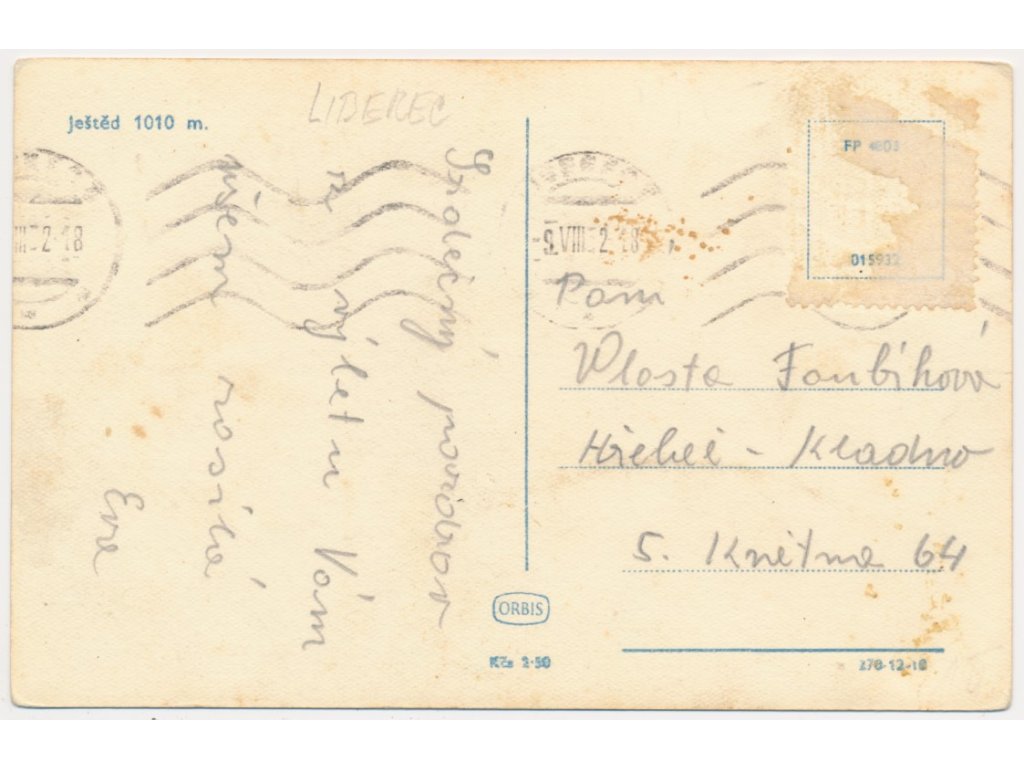 LIBEREC
Ještěd 1010 m.
FP
015932
9.VIII 52-18
VIII 52-18
Srdečný pozdrav
z výletu Vám
všem posílá
Eva
Paní
Vlasta Foubíková
Hřebeč - Kladno
5. Května 64
ORBIS
Kčs 2·50
270-12-10